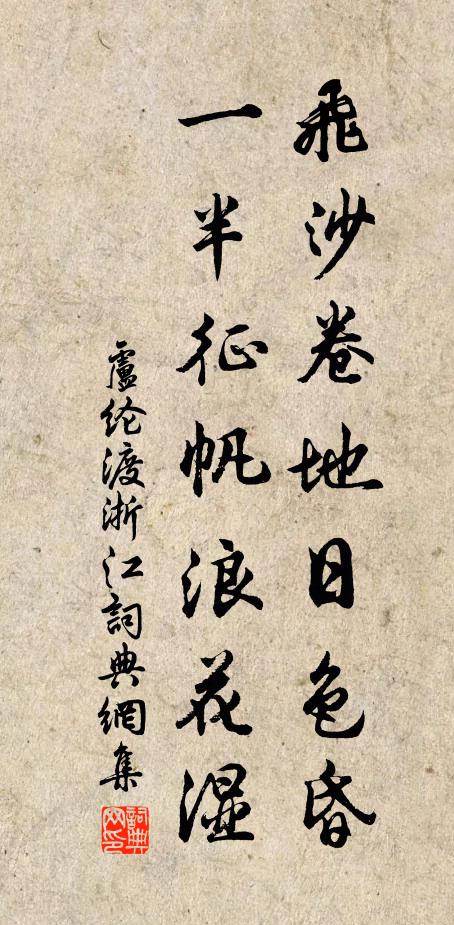 飛沙卷地日色昏
一半征帆浪花湿
盧纶渡浙江詞典網集
詞典网印